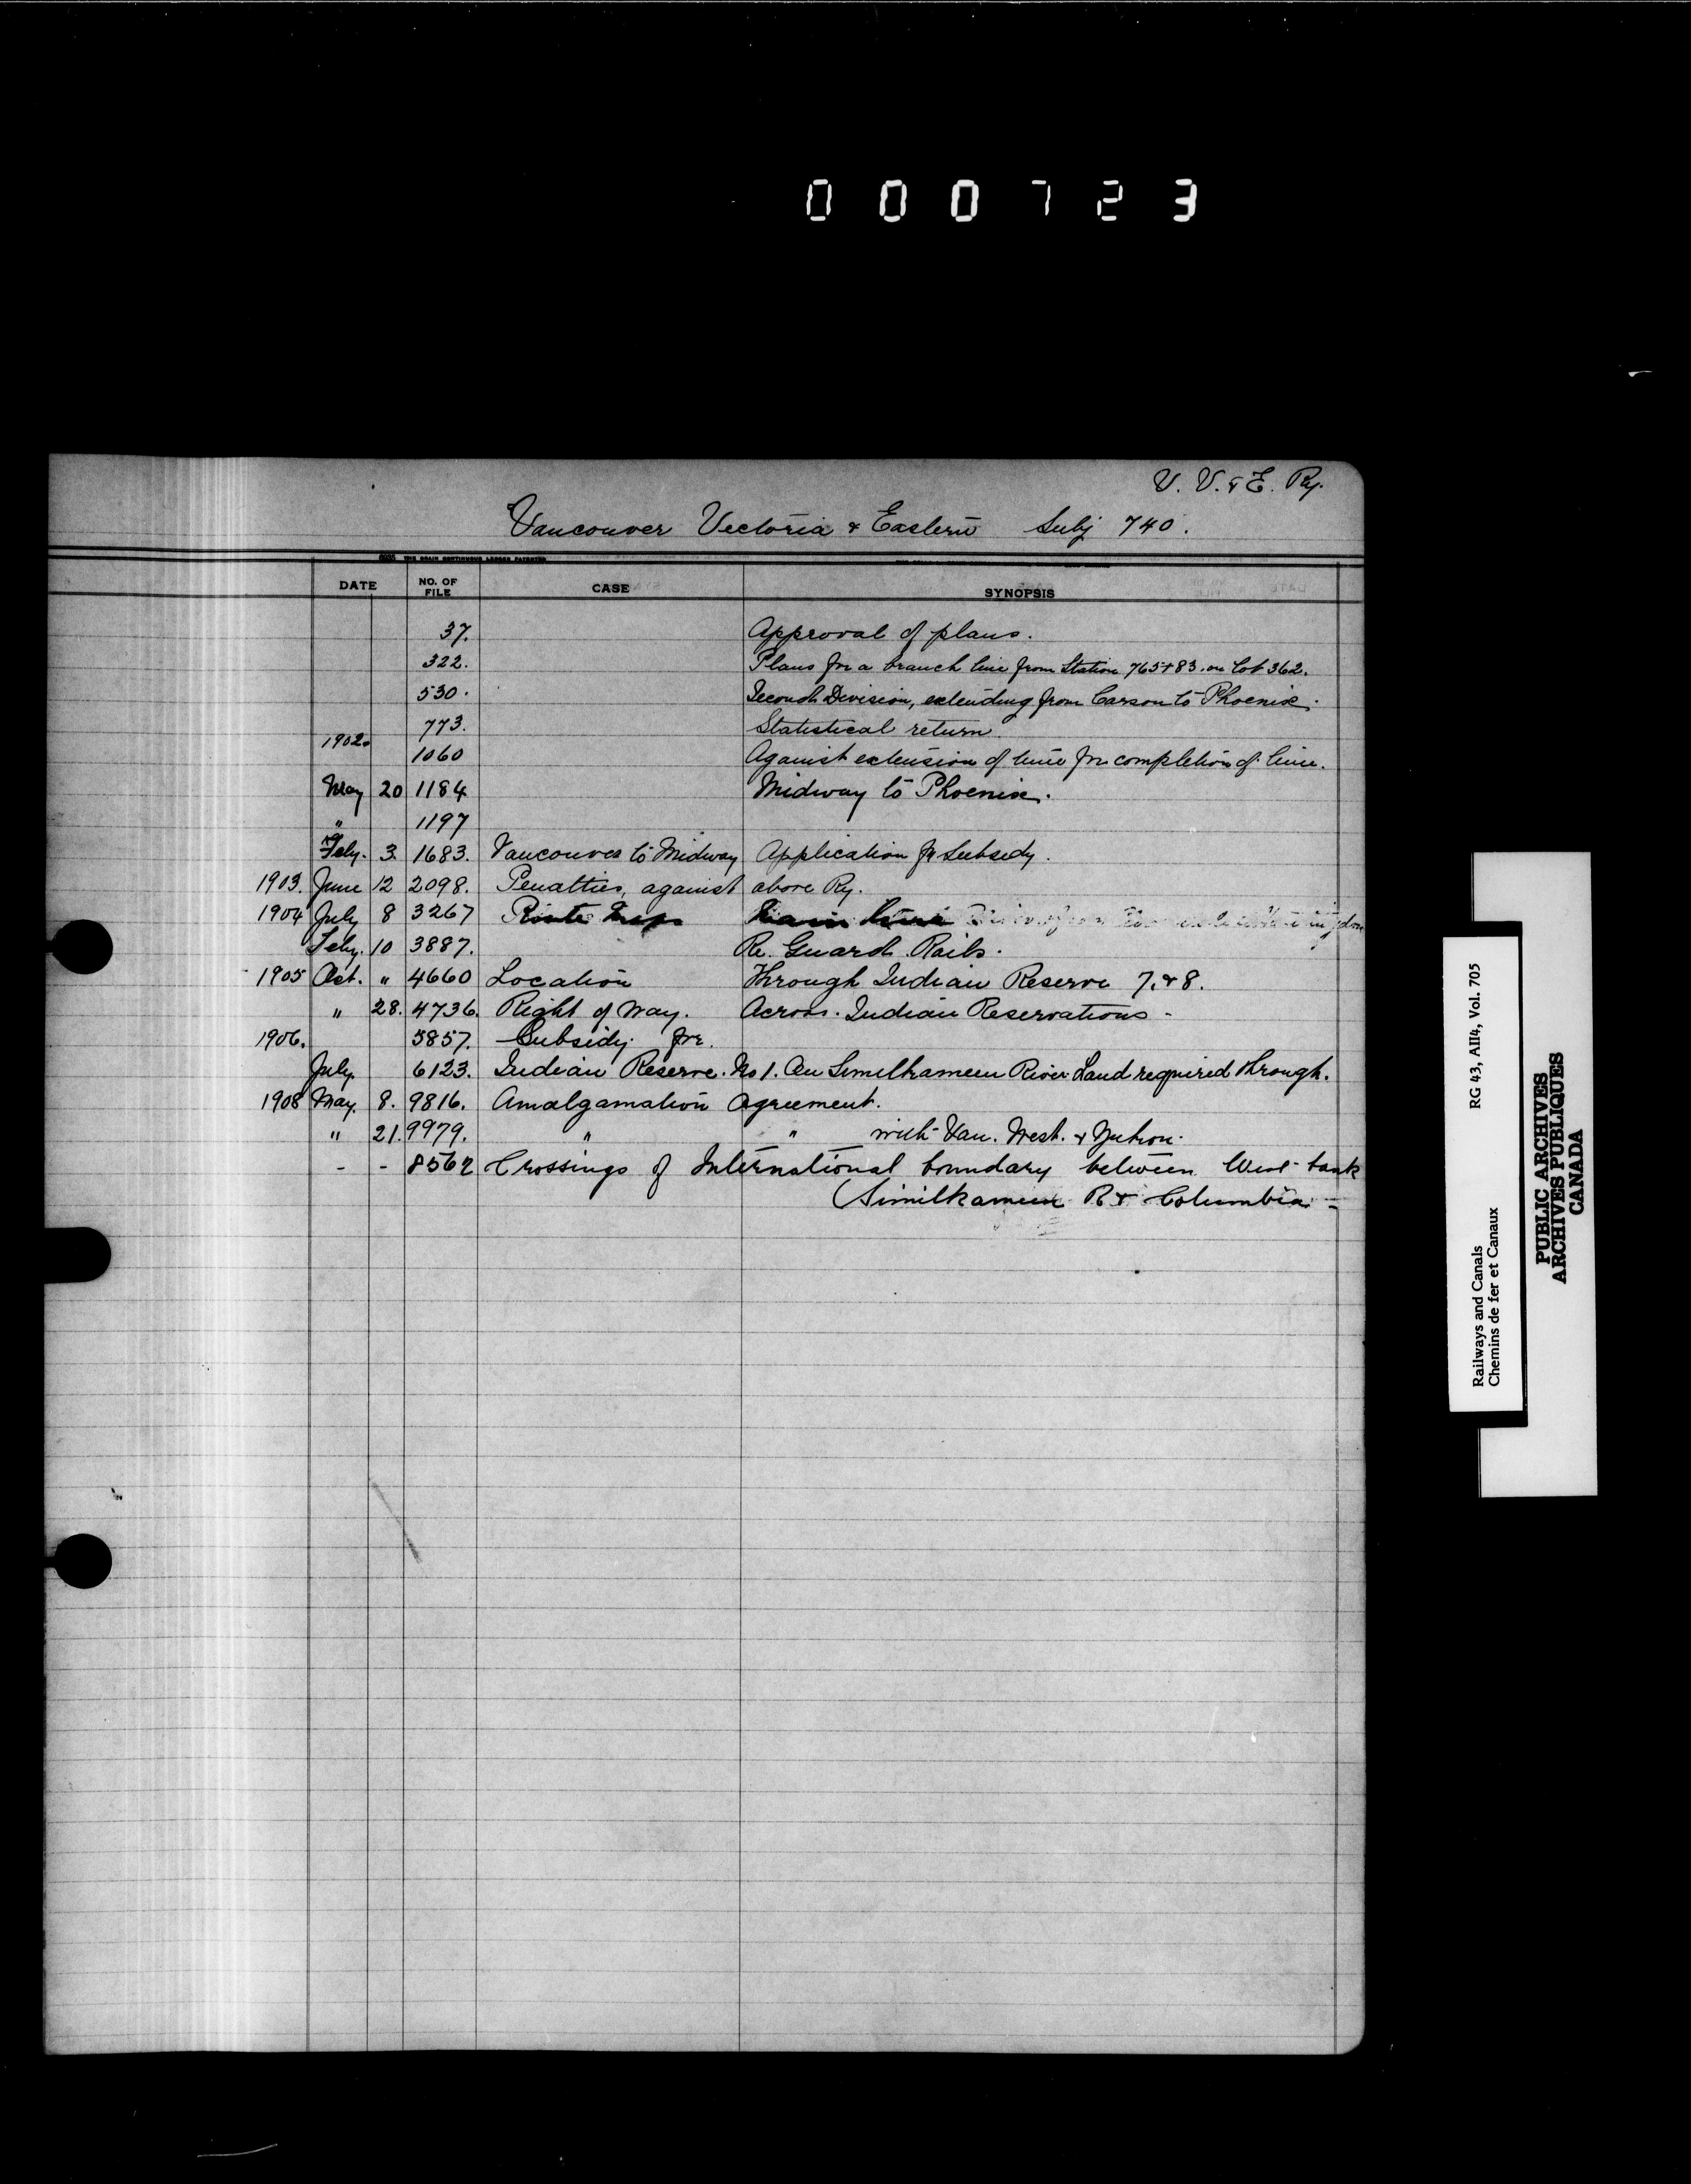 000723
V. V. & E. Ry.
Vancouver Victoria & Eastern Subj 740.
DATE NO. OF FILE CASE SYNOPSIS
37. Approval of plans.
322. Plans for a branch line from Station 765+83. on Lot 362.
530. Second Division, extending from Carson to Phoenix.
773. Statistical return.
1902.
1060 Against extension of time for completion of line.
May 20 1184 Midway to Phoenix.
" 1197
Feby. 3. 1683. Vancouver to Midway Application for Subsidy.
1903. June 12 2098. Penalties, against above Ry.
1904 July 8 3267 Route Map Main Line
Feby. 10 3887. Re. Guard Rails.
1905 Oct. " 4660 Location Through Indian Reserve 7. & 8.
" 28. 4736. Right of Way. Across. Indian Reservations -
1906. 5857. Subsidy for.
July. 6123. Indian Reserve. No 1. On Similkameen River Land required through.
1908 May. 8. 9816. Amalgamation Agreement.
" 21. 9979. " " with Van. West. & Yukon.
- - 8562 Crossings of International boundary between West bank
(Similkameen R & Columbia -
RG 43, AII4, Vol. 705
Railways and Canals
Chemins de fer et Canaux
PUBLIC ARCHIVES
ARCHIVES PUBLIQUES
CANADA